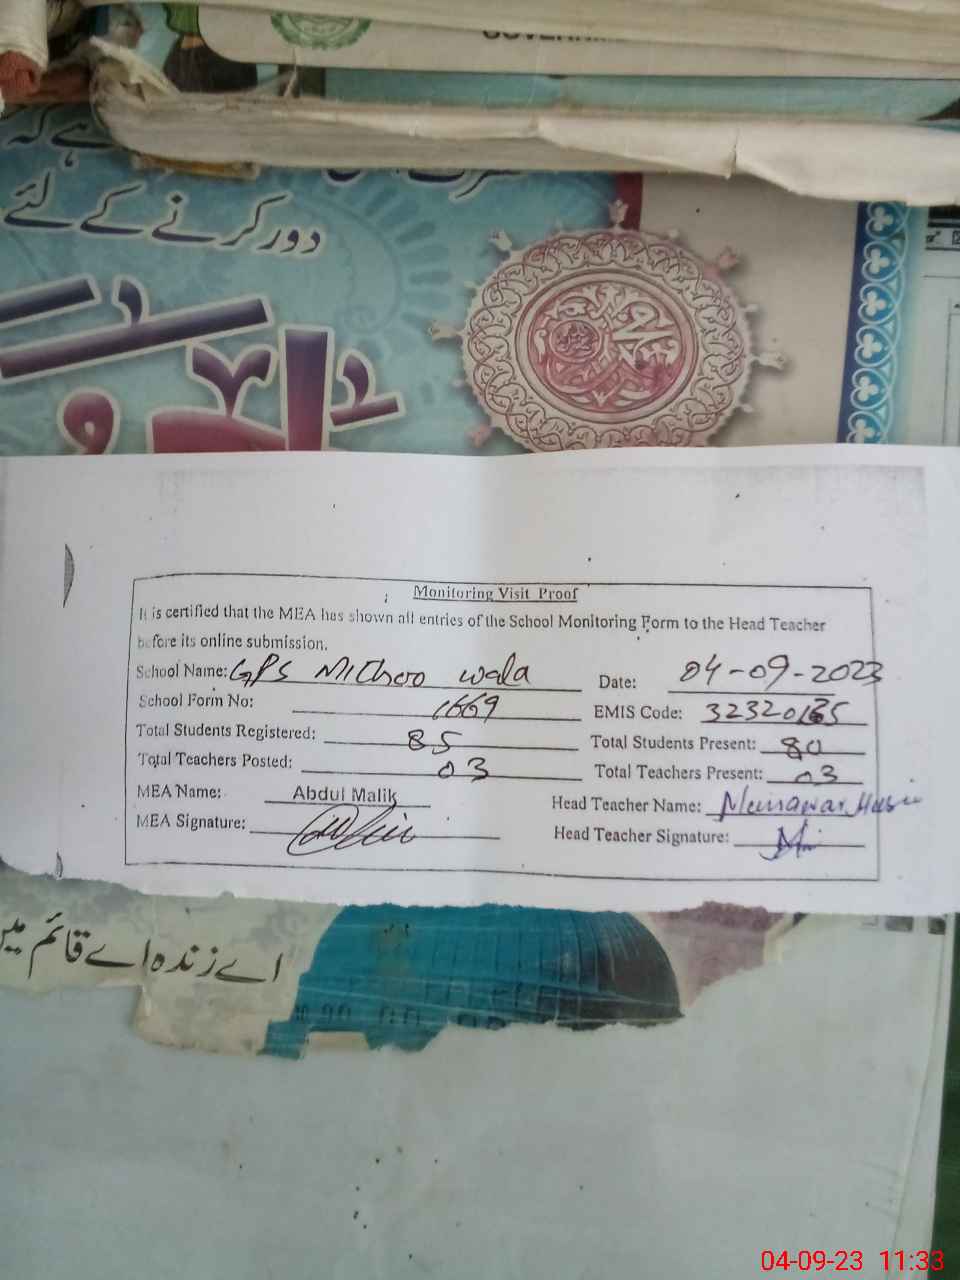 ہے کہ
دور کرنے کے لئے
Monitoring Visit Proof
It is certified that the MEA has shown all entries of the School Monitoring Form to the Head Teacher
before its online submission.
School Name: GPS Mithoo wala Date: 04-09-2023
School Form No: 1669 EMIS Code:
Total Students Registered: 85 Total Students Present: 80
Total Teachers Posted: 03 Total Teachers Present: 03
MEA Name: Abdul Malik Head Teacher Name: Munawar
MEA Signature: Head Teacher Signature:
اے زندہ اے قائم میں
04-09-23 11:33